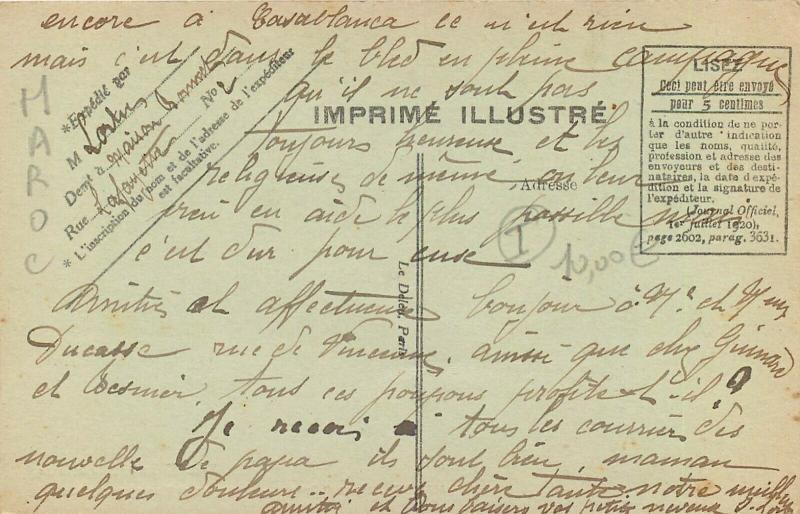 encore à Casablanca ce n'est rien
mais c'est dans le bled en pleine campagne
qu'il ne sont pas
toujours heureuse et les
religieuses de même, on leur
vien en aide le plus possible mais
c'est dur pour euse
Amitiés et affectueux bonjour à Mr et Mme
Ducasse rue de Vincennes. ainssi que chez
et tous ces poupons profite-t-il?
Je recois tous les courrier des
nouvelle de papa ils sont bien, maman
quelques douleurs.. recevez chère Tante notre meilleur
amitié et bons baisers vos petits neveux
MAROC
* Expédié par
M
Demt à maison
No 2
Rue Lafayette
* L'inscription du nom et de l'adresse de l'expéditeur
est facultative.
IMPRIMÉ ILLUSTRÉ
Adresse
LISEZ
Ceci peut être envoyé
pour 5 centimes
à la condition de ne por-
ter d'autre indication
que les noms, qualité,
profession et adresse des
envoyeurs et des desti-
nataires, la date d'expé-
dition et la signature de
l'expéditeur.
(Journal Officiel,
1er juillet 1920),
page 2602, parag. 3631.
I
10,00€
Le Deley, Paris